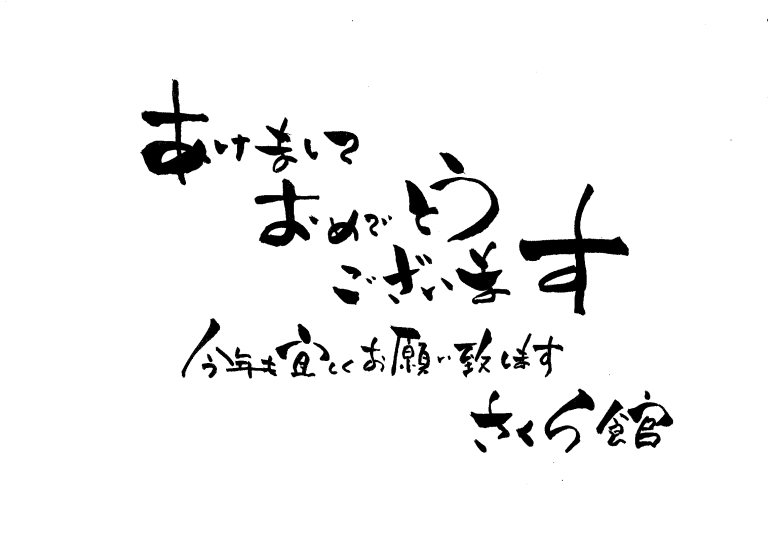 あけまして
おめでとう
ございます
今年も宜しくお願い致します
さくら館